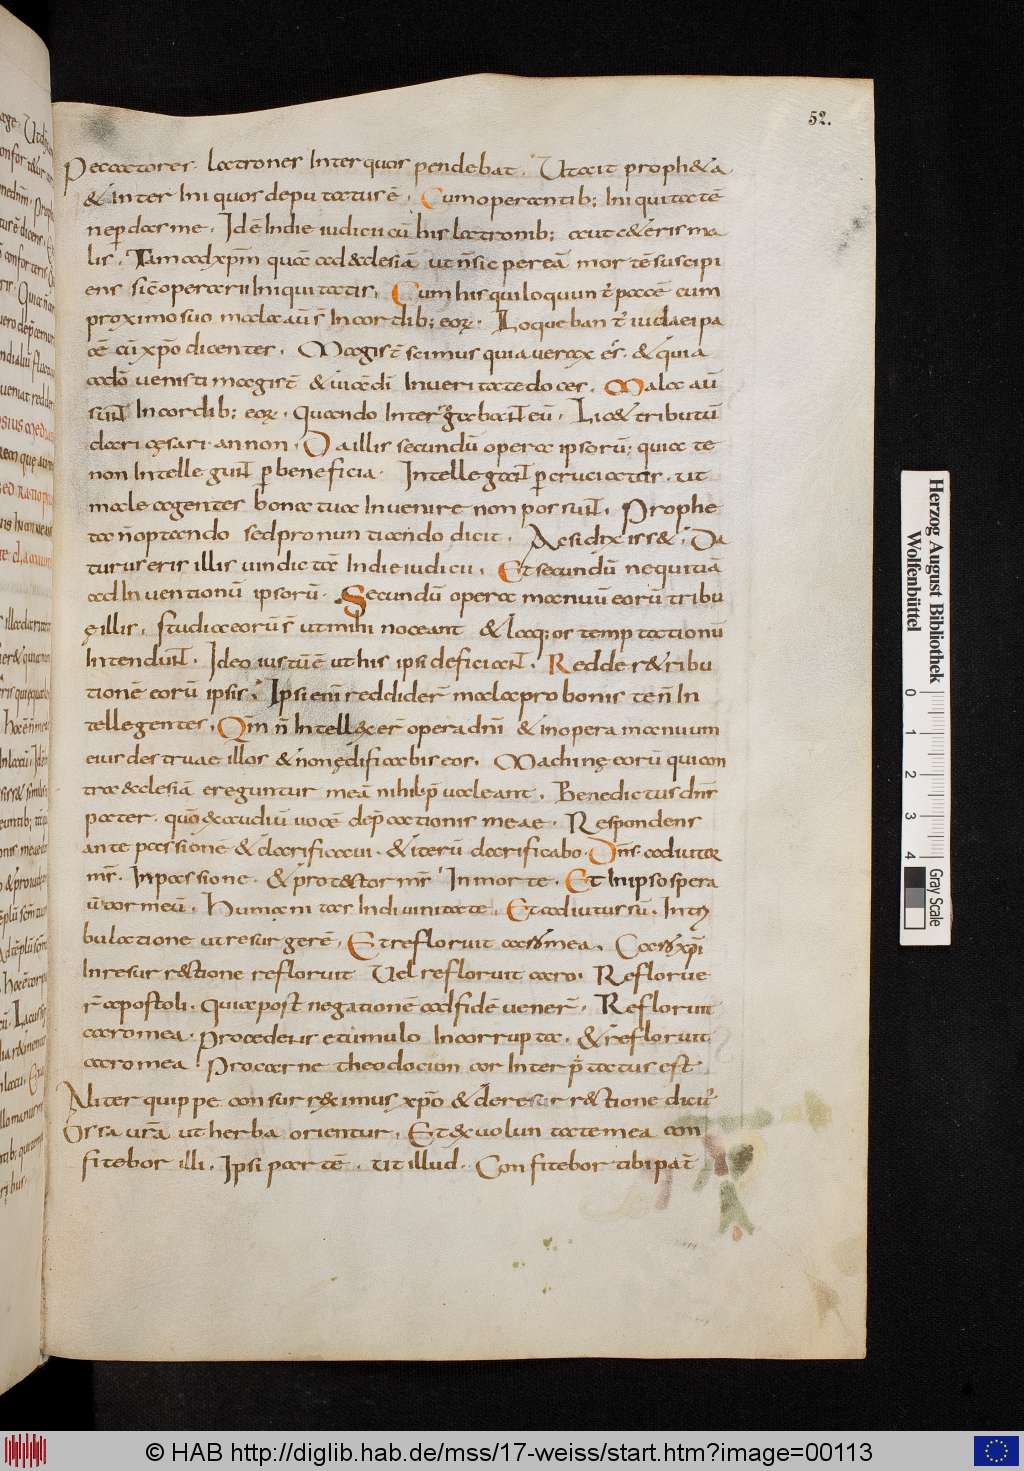 52.
Peccatores. latrones Inter quos pendebat. Ut ait proph&a
& inter Iniquos deputatus ē. Cum operantib; Iniquitatē
ne ꝑdas me. Id ē In die iudicii cū his latronib; aut c&eris ma
lis. Tam ad xp̄m quā ad ecclesiā ut n̄ sic pereā mortē suscipi
ens sic̄ operarii Iniquitatis. Cum his qui loquunt᷒ pacē cum
proximo suo mala aū s̄ In cordib; eoꝝ. Loquebant᷒ iudaei pa
cē cū xp̄o dicentes. Magist̄ scimus quia verax es̄. & quia
a dō venisti magist̄ & viā dī In veritate doces. Mala aū
sunt In cordib; eoꝝ. Quando Interrogabant eū. Lic& tributū
dari cęsari an non. Da illis secundū opera ipsorū. quia te
non Intellegunt ꝑ beneficia. Intellegant ꝑ cruciatus. ut
male agentes bona tua Invenire non possunt. Prophe
ta n̄ optando sed pronuntiando dicit. Ac si dixiss&. Da
turus eris illis vindictā In die iudicii. Et secundū nequitiā
ad Inventionū ipsorū. Secundū opera manuū eorū tribu
ę illis. Studia eorū s̄ ut mihi noceant & laq;os temptationū
Intendunt. Ideo iustū ē ut his ipsi deficiant. Redde r&ribu
tionē eorū ipsis. Ipsi eni reddider̄ mala pro bonis te n̄ In
tellegentes. Qm̄ n̄ Intellexer̄ opera dnī & in opera manuum
eius destrue illos & non ędificabis eos. Machinę eorū qui con
tra ecclesiā ereguntur meā nihil ꝑvaleant. Benedictus dns̄
pater. quō exaudiū vocē dep̄cationis meae. Respondens
ante passione & clarificavi. & iterū clarificabo. Dns̄. adiutor
ms̄. In passione. & protector ms̄ In morte. Et In ipso spera
ū cor meū. Humanitas In divinitate. Et adiutus sū. In t
bulatione ut resurgerē. Et refloruit caro mea. Caro xp̄i
In resurrectione refloruit Vel refloruit caro. Reflorue
r̄ apostoli. Quia post negationē ad fidē vener̄. Refloruit
caro mea. Procedens e tumulo Incorrupta. & refloruit
caro mea. Pro carne theodocion cor Interp̄tatus est
Aliter quippe consurreximus xp̄o & de resurrectione dicit᷒
Ossa vrā ut herba orientur. Et ex voluntate mea con
fitebor illi. Ipsi partē. ut illud. Confitebor tibi pat̄
Herzog August Bibliothek
Wolfenbüttel
0 1 2 3 4
Gray Scale
© HAB http://diglib.hab.de/mss/17-weiss/start.htm?image=00113